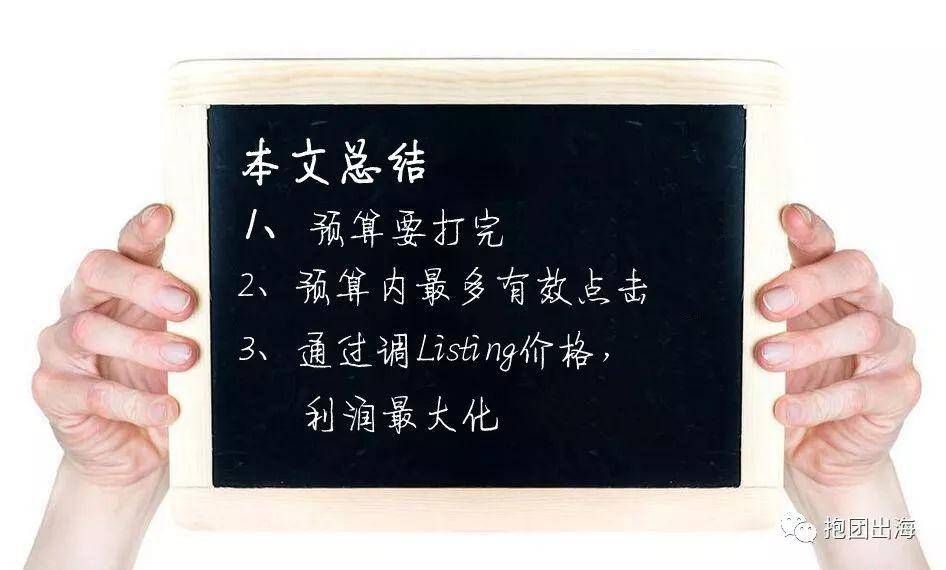 本文总结
1、预算要打完
2、预算内最多有效点击
3、通过调Listing价格，
利润最大化
抱团出海